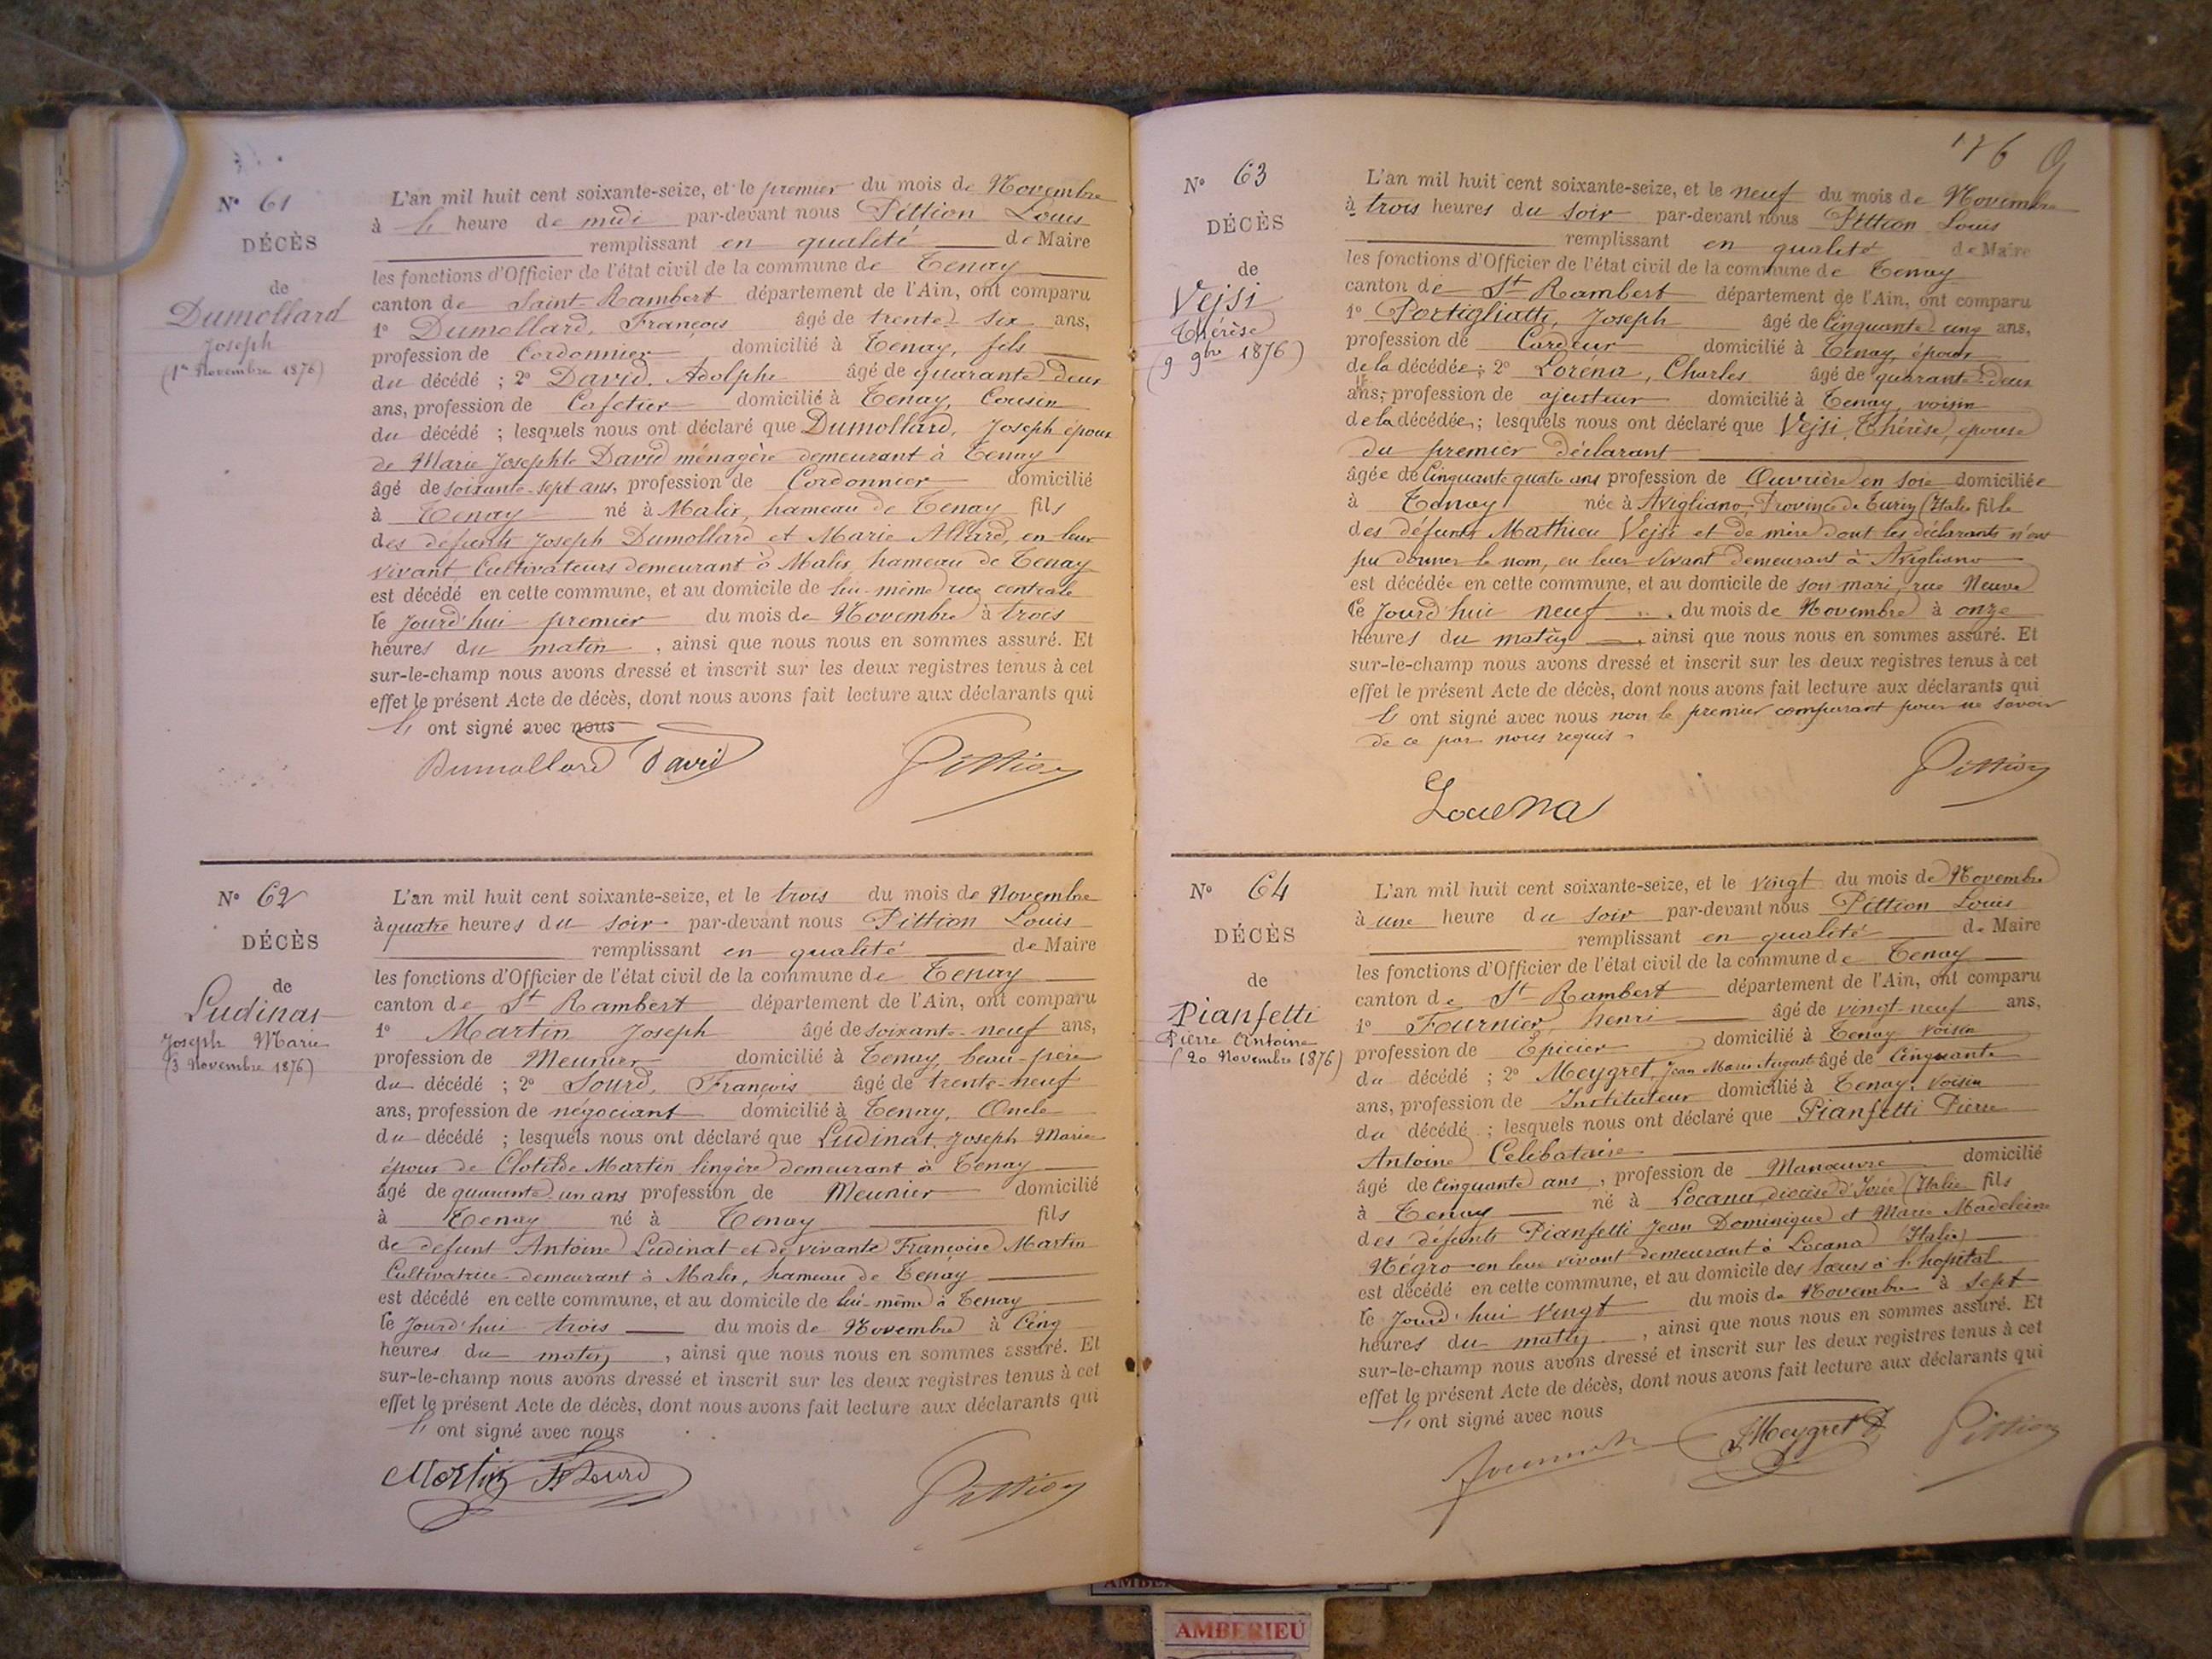 N° 61
DÉCÈS
de
Dumollard
Joseph
(1er Novembre 1876)
L'an mil huit cent soixante-seize, et le premier du mois de Novembre
à heure de midi par-devant nous Pittion Louis
remplissant en qualité de Maire
les fonctions d'Officier de l'état civil de la commune de Tenay
canton de Saint-Rambert département de l'Ain, ont comparu
1° Dumollard, François âgé de trente-six ans,
profession de Cordonnier domicilié à Tenay, fils
du décédé ; 2° David, Adolphe âgé de quarante-deux
ans, profession de Cafetier domicilié à Tenay, Cousin
du décédé ; lesquels nous ont déclaré que Dumollard, Joseph époux
de Marie Josephte David ménagère demeurant à Tenay
âgé de soixante-sept ans, profession de Cordonnier domicilié
à Tenay né à Malix, hameau de Tenay fils
des défunts Joseph Dumollard et Marie Allard, en leur
vivant Cultivateurs demeurant à Malix, hameau de Tenay
est décédé en cette commune, et au domicile de lui-même rue centrale
le jourd'hui premier du mois de Novembre à trois
heures du matin, ainsi que nous nous en sommes assuré. Et
sur-le-champ nous avons dressé et inscrit sur les deux registres tenus à cet
effet le présent Acte de décès, dont nous avons fait lecture aux déclarants qui
ont signé avec nous
Dumollard David Pittion
N° 62
DÉCÈS
de
Ludinat
Joseph Marie
(3 Novembre 1876)
L'an mil huit cent soixante-seize, et le trois du mois de Novembre
à quatre heures du soir par-devant nous Pittion Louis
remplissant en qualité de Maire
les fonctions d'Officier de l'état civil de la commune de Tenay
canton de St Rambert département de l'Ain, ont comparu
1° Martin Joseph âgé de soixante-neuf ans,
profession de Meunier domicilié à Tenay, beau-père
du décédé ; 2° Sourd, François âgé de trente-neuf
ans, profession de négociant domicilié à Tenay, Oncle
du décédé ; lesquels nous ont déclaré que Ludinat, Joseph Marie
époux de Clotilde Martin lingère demeurant à Tenay
âgé de quarante-un ans profession de Meunier domicilié
à Tenay né à Tenay fils
de defunt Antoine Ludinat et de vivante Françoise Martin
Cultivatrice demeurant à Malix, hameau de Tenay
est décédé en cette commune, et au domicile de lui-même à Tenay
le jourd'hui trois du mois de Novembre à cinq
heures du matin, ainsi que nous nous en sommes assuré. Et
sur-le-champ nous avons dressé et inscrit sur les deux registres tenus à cet
effet le présent Acte de décès, dont nous avons fait lecture aux déclarants qui
ont signé avec nous
Martin Fs Sourd Pittion
176
N° 63
DÉCÈS
de
Vejsi
Thérèse
(9 9bre 1876)
L'an mil huit cent soixante-seize, et le neuf du mois de Novembre
à trois heures du soir par-devant nous Pittion Louis
remplissant en qualité de Maire
les fonctions d'Officier de l'état civil de la commune de Tenay
canton de St Rambert département de l'Ain, ont comparu
1° Portigliatti, Joseph âgé de Cinquante cinq ans,
profession de Cardeur domicilié à Tenay, époux
de la décédée ; 2° Loréna, Charles âgé de quarante-deux
ans, profession de ajusteur domicilié à Tenay, voisin
de la décédée ; lesquels nous ont déclaré que Vejsi, Thérèse, épouse
du premier déclarant
âgée de Cinquante quatre ans profession de Ouvrière en soie domiciliée
à Tenay née à Avigliano, Province de Turin (Italie fille
des défunts Mathieu Vejsi et de mère dont les déclarants n'ont
pu donner le nom, en leur vivant demeurant à Avigliano
est décédée en cette commune, et au domicile de son mari, rue Neuve
le jourd'hui neuf du mois de Novembre à onze
heures du matin, ainsi que nous nous en sommes assuré. Et
sur-le-champ nous avons dressé et inscrit sur les deux registres tenus à cet
effet le présent Acte de décès, dont nous avons fait lecture aux déclarants qui
ont signé avec nous non le premier comparant pour ne savoir
de ce par nous requis.
Lorena Pittion
N° 64
DÉCÈS
de
Pianfetti
Pierre Antoine
(20 Novembre 1876)
L'an mil huit cent soixante-seize, et le vingt du mois de Novembre
à une heure du soir par-devant nous Pittion Louis
remplissant en qualité de Maire
les fonctions d'Officier de l'état civil de la commune de Tenay
canton de St Rambert département de l'Ain, ont comparu
1° Fournier, henri âgé de vingt-neuf ans,
profession de Epicier domicilié à Tenay voisin
du décédé ; 2° Meygret, Jean Marie August âgé de Cinquante
ans, profession de Instituteur domicilié à Tenay, voisin
du décédé ; lesquels nous ont déclaré que Pianfetti Pierre
Antoine Celibataire
âgé de Cinquante ans, profession de Manœuvre domicilié
à Tenay né à Locana, diocèse d'Ivrée (Italie fils
des défunts Pianfetti Jean Dominique et Marie Madeleine
Négro en leur vivant demeurant à Locana (Italie)
est décédé en cette commune, et au domicile des sœurs à l'hopital
le jourd'hui vingt du mois de Novembre à sept
heures du matin, ainsi que nous nous en sommes assuré. Et
sur-le-champ nous avons dressé et inscrit sur les deux registres tenus à cet
effet le présent Acte de décès, dont nous avons fait lecture aux déclarants qui
ont signé avec nous
Meygret Pittion
AMBERIEU